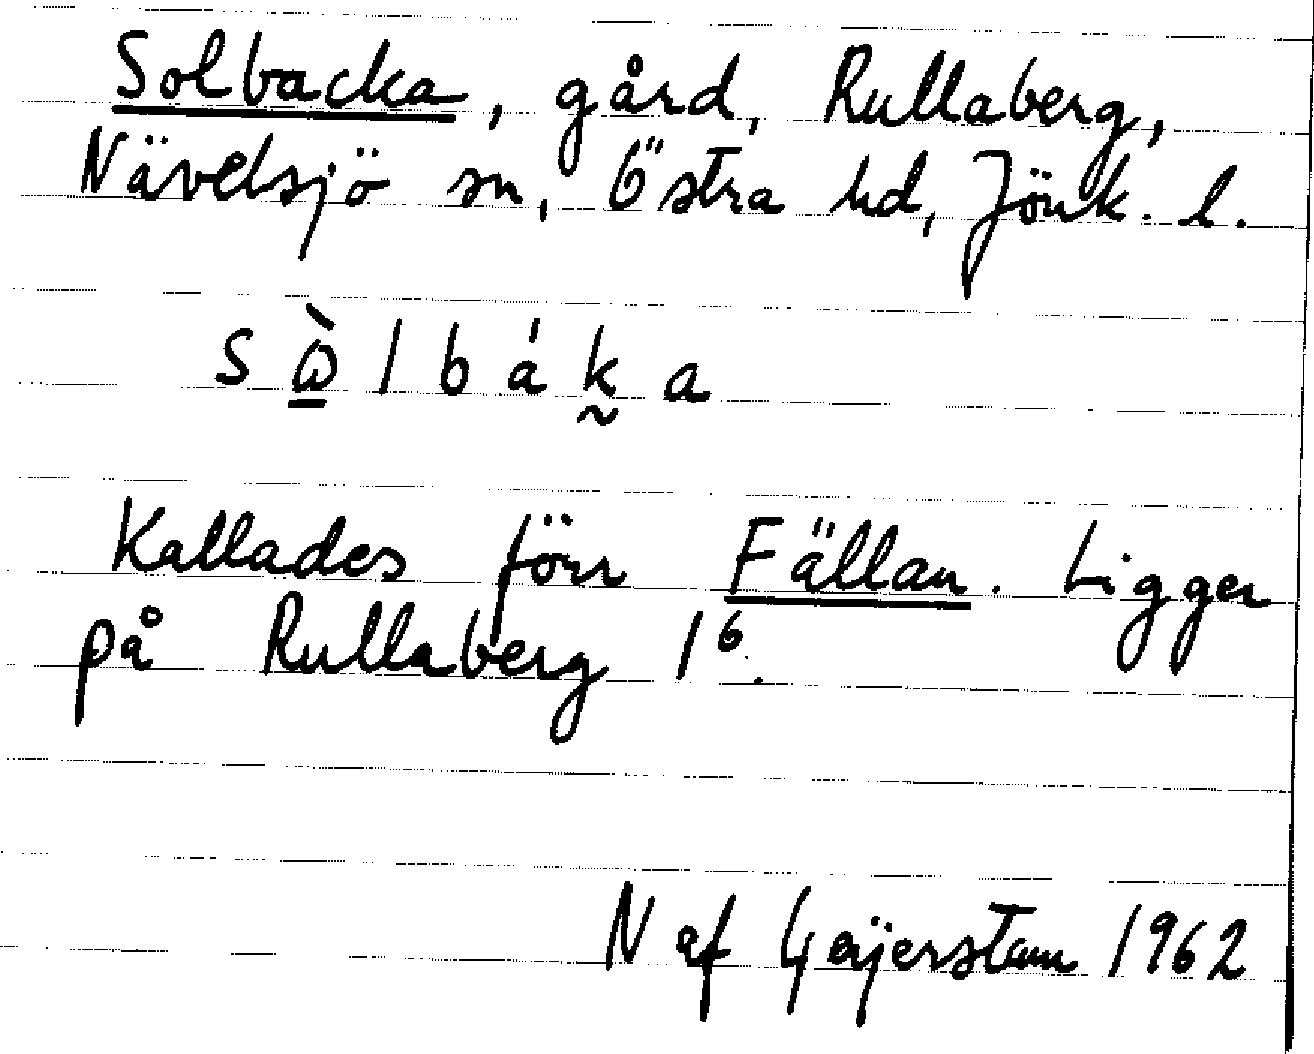 Solbacka, gård, Rullaberg,
Nävelsjö sn, Östra hd, Jönk. l.
Kallades förr Fällan. Ligger
på Rullaberg 1⁶.
N af Geijerstam 1962